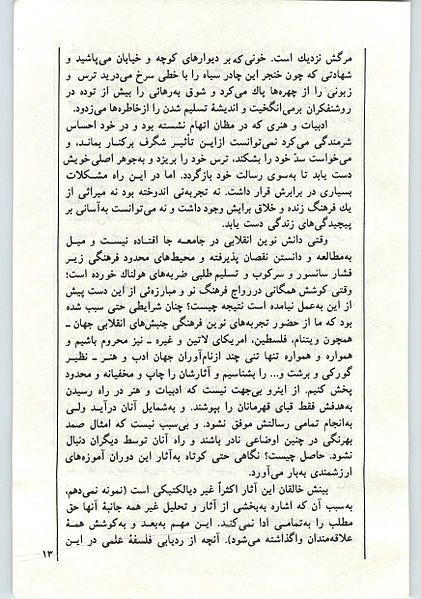 مرگش نزدیك است. خونی که بر دیوارهای کوچه و خیابان می‌پاشید و
شهادتی که چون خنجر این چادر سیاه را با خطی سرخ می‌درید ترس و
زبونی را از چهره‌ها پاك می‌کرد و شوق به‌رهائی را بیش از توده در
روشنفکران برمی‌انگخیت و اندیشهٔ تسلیم شدن را ازخاطره‌ها می‌زدود.
ادبیات و هنری که در مظان اتهام نشسته بود و در خود احساس
شرمندگی می‌کرد نمی‌توانست ازاین تأثیر شگرف برکنار بماند، و
می‌خواست سدّ خود را بشکند، ترس خود را بریزد و به‌جوهر اصلی‌خویش
دست یابد تا به‌سوی رسالت خود بازگردد. اما در این راه مشکلات
بسیاری در برابرش قرار داشت. نه تجربه‌ئی اندوخته بود نه میراثی از
یك فرهنگ زنده و خلاق برایش وجود داشت و نه می‌توانست به‌آسانی بر
پیچیدگی‌های زندگی دست یابد.
وقتی دانش نوین انقلابی در جامعه جا افتاده نیست و میل
به‌مطالعه و دانستن نقصان پذیرفته و محیط‌های محدود فرهنگی زیر
فشار سانسور و سرکوب و تسلیم طلبی ضربه‌های هولناك خورده است؛
وقتی کوشش همگانی دررواج فرهنگ نو و مبارزه‌ئی از این دست پیش
از این به‌عمل نیامده است نتیجه چیست؟ چنان شرایطی حتی سبب شده
بود که ما از حضور تجربه‌های نوین فرهنگی جنبش‌های انقلابی جهان ـ
همچون ویتنام، فلسطین، امریکای لاتین و غیره ـ نیز محروم باشیم و
همواره و همواره تنها تنی چند ازنام‌آوران جهان ادب و هنر ـ نظیر
گورکی و برشت و... را بشناسیم و آثارشان را چاپ و مخفیانه و محدود
پخش کنیم. از اینرو بی‌جهت نیست که ادبیات و هنر در راه رسیدن
به‌هدفش فقط قبای قهرمانان را بپوشند و به‌شمایل آنان درآید ولی
به‌انجام تمامی رسالتش موفق نشود. و بی‌سبب نیست که امثال صمد
بهرنگی در چنین اوضاعی نادر باشند و راه آنان توسط دیگران دنبال
نشود. حاصل چیست؟ نگاهی حتی کوتاه به‌آثار این دوران آموزه‌های
ارزشمندی به‌بار می‌آورد.
بینش خالقان این آثار اکثراً غیر دیالکتیکی است (نمونه نمی‌دهم،
به‌سبب آن که اشاره به‌بخشی از آثار و تحلیل غیر همه جانبهٔ آنها حق
مطلب را به‌تمامی ادا نمی‌کند. این مهم به‌بعد و به‌کوشش همهٔ
علاقه‌مندان واگذاشته می‌شود). آنچه از ردیابی فلسفهٔ علمی در این
۱۳